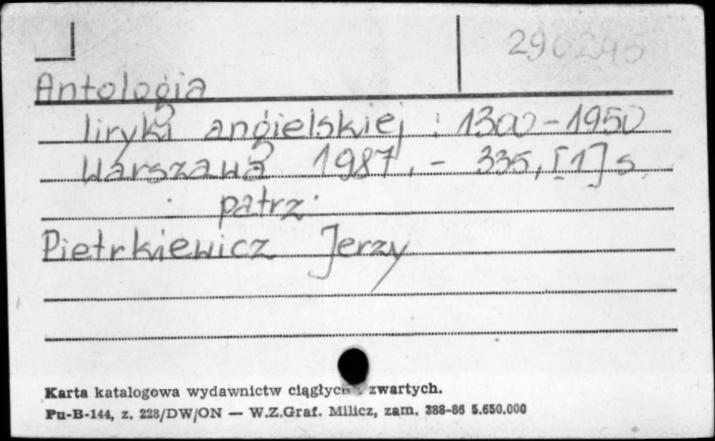 Antologia
liryki angielskiej : 1300-1950
Warszawa 1987. - 335, [1] s.
patrz
Pietrkiewicz Jerzy
Karta katalogowa wydawnictw ciągłych zwartych.
Pu-B-144, z. 228/DW/ON — W.Z.Graf. Milicz, zam. 388-86 5.650.000